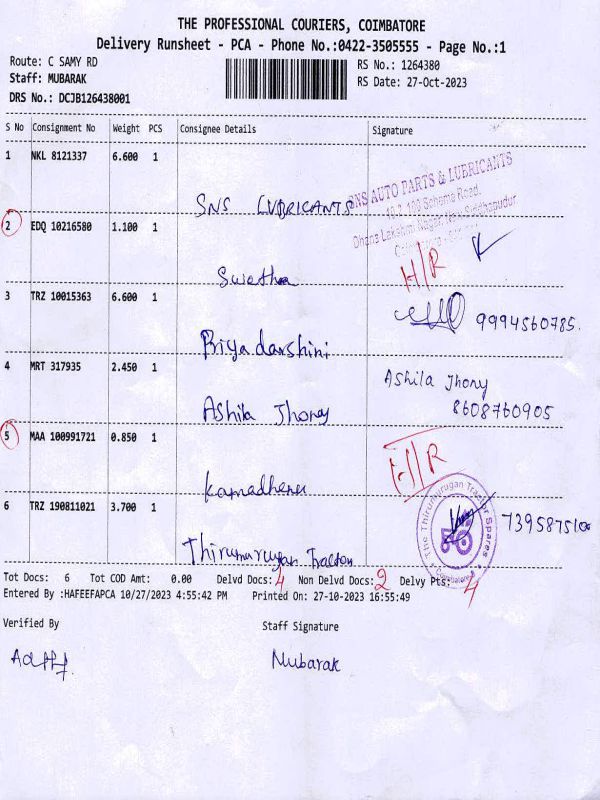 THE PROFESSIONAL COURIERS, COIMBATORE
Delivery Runsheet - PCA - Phone No.:0422-3505555 - Page No.:1
Route: C SAMY RD
Staff: MUBARAK
DRS No.: DCJB126438001
RS No.: 1264380
RS Date: 27-Oct-2023
S No Consignment No Weight PCS Consignee Details Signature
1 NKL 8121337 6.600 1
SNS LUBRICANTS
SNS AUTO PARTS & LUBRICANTS
Dhana Lakshmi Nagar
2 EDQ 10216580 1.100 1
Swetha
H/R
3 TRZ 10015363 6.600 1
Priya darshini
9994560785.
4 MRT 317935 2.450 1
Ashila Jhony
Ashila Jhony
8608760905
5 MAA 100991721 0.850 1
Kamadhenu
H/R
6 TRZ 190811021 3.700 1
Thirumurugan Tractor
The Thirumurugan Tractor Spares
Coimbatore
Tot Docs: 6 Tot COD Amt: 0.00 Delvd Docs: 4 Non Delvd Docs: 2 Delvy Pts: 4
Entered By :HAFEEFAPCA 10/27/2023 4:55:42 PM Printed On: 27-10-2023 16:55:49
Verified By Staff Signature
Mubarak